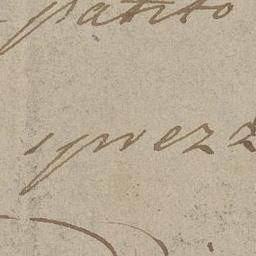 patito
sprezz